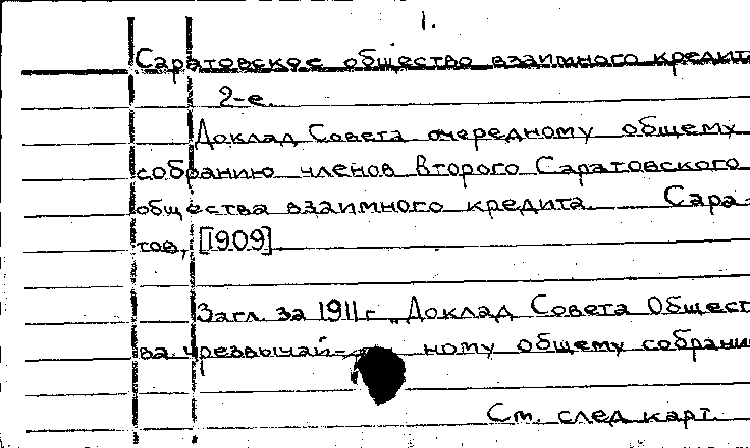 1.
Саратовское общество взаимного кредита
2-е.
Доклад Совета очередному общему
собранию членов Второго Саратовского
общества взаимного кредита. Сара-
тов, [1909].
Загл. за 1911 г. „Доклад Совета Общест
ва чрезвычай- ному общему собрани
См. след. карт.